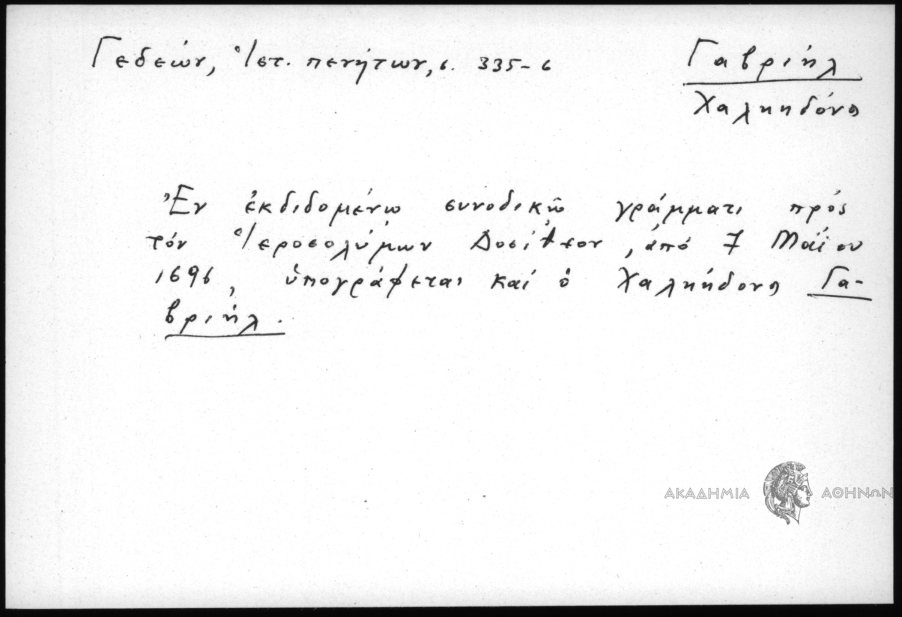 Γεδεών, Ἱστ. πενήτων, σ. 335-6
Γαβριήλ
Χαλκηδόνος
Ἐν ἐκδιδομένῳ συνοδικῷ γράμματι πρός
τόν Ἱεροσολύμων Δοσίθεον, ἀπό 7 Μαΐου
1696, ὑπογράφεται καί ὁ Χαλκηδόνος Γα-
βριήλ.
ΑΚΑΔΗΜΙΑ ΑΘΗΝΩΝ